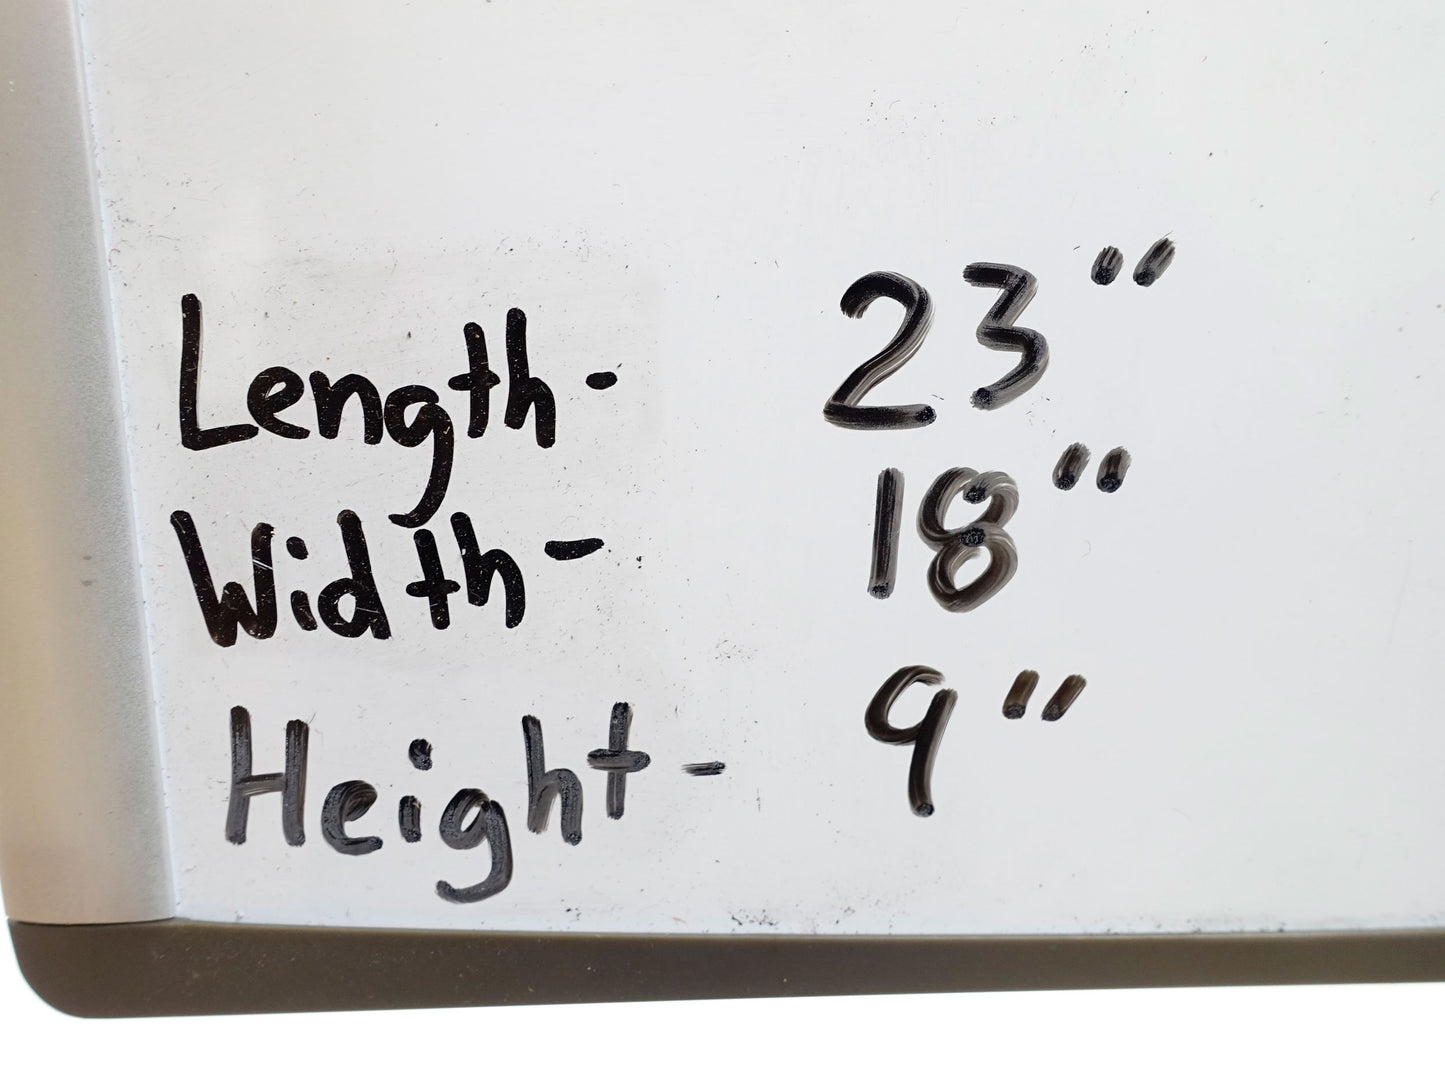 Length- 23"
Width- 18"
Height- 9"